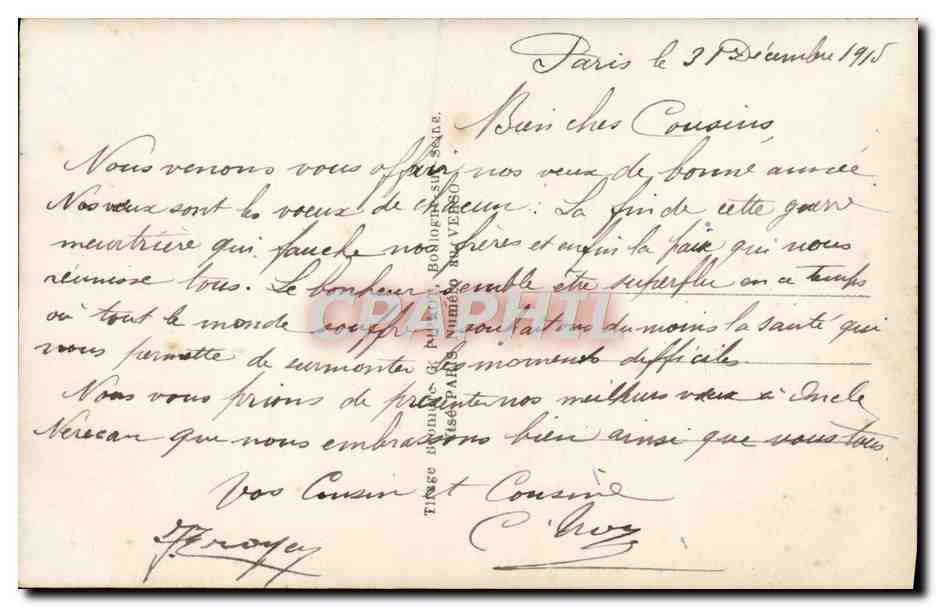 Paris le 31 Décembre 1915
Bien chers Cousins,
Nous venons vous offrir nos vœux de bonne année
Nos vœux sont les voeux de chacun : La fin de cette guerre
meurtrière qui fauche nos frères et enfin la paix qui nous
réunisse tous. Le bonheur semble être superflu en ce temps
où tout le monde souffre souhaitons du moins la santé qui
nous permette de surmonter les moments difficiles.
Nous vous prions de présenter nos meilleurs vœux à Oncle
que nous embrassons bien ainsi que vous tous.
Vos Cousin et Cousine
Tirage Bromure G. Boulogne-sur-Seine.
Visé PARIS Numéro au VERSO
CPAPHIL